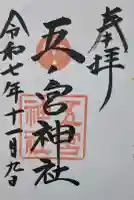 奉拝
五ノ宮神社
令和七年十一月九日